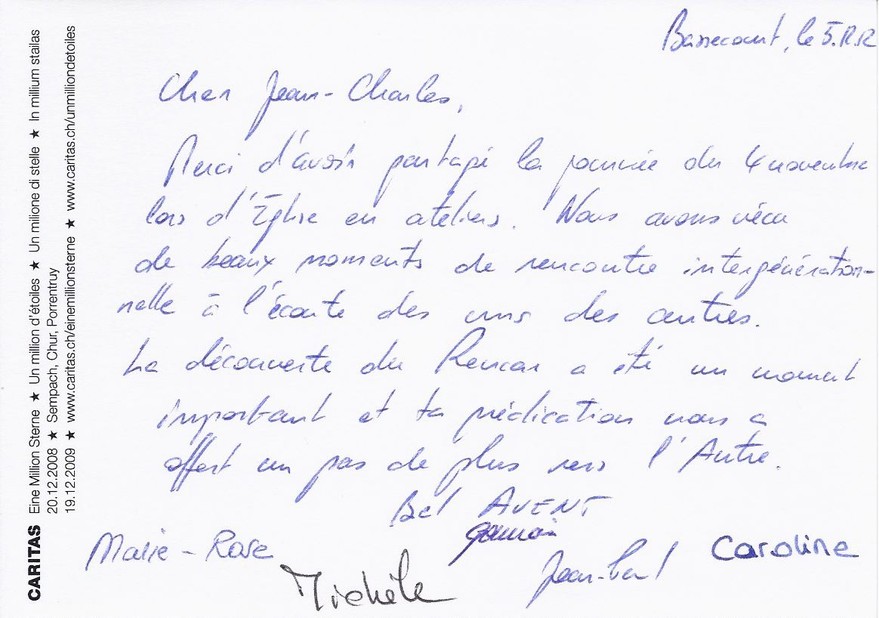 Bassecourt, le 5.12.12
Cher Jean-Charles,
Merci d'avoir partagé la journée du 4 novembre
lors d'Eglise en ateliers. Nous avons vécu
de beaux moments de rencontre intergénération-
nelle à l'écoute des uns des autres.
La découverte du Rencar a été un moment
important et ta prédication nous a
offert un pas de plus vers l'Autre.
Bel AVENT
Marie-Rose
Michèle
Jean-Paul
Caroline
CARITAS Eine Million Sterne ★ Un million d'étoiles ★ Un milione di stelle ★ In millium stailas
20.12.2008 ★ Sempach, Chur, Porrentruy
19.12.2009 ★ www.caritas.ch/einemillionsterne ★ www.caritas.ch/unmilliondetoiles